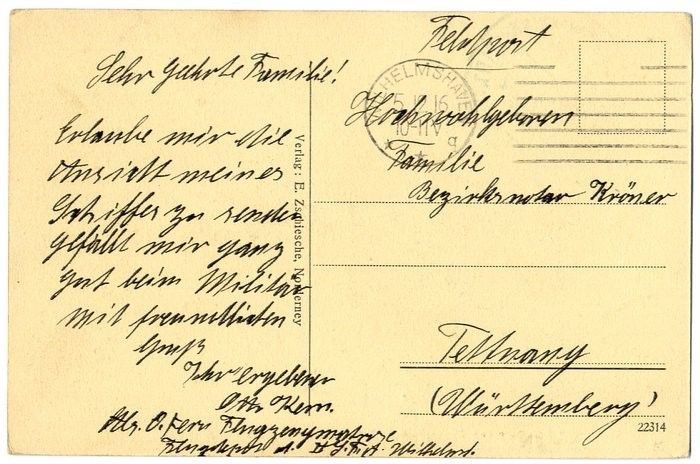 Sehr geehrte Familie!
Erlaube mir die
Ansicht meines
Schiffes zu senden
gefällt mir ganz
gut beim Militär
mit freundlichen
Gruß
Ihr ergebener
Otto Kern.
Abs. O. Kern Flugzeugmatrose
Wilhelmsh.
Verlag: E. Zschiesche, Norderney
Feldpost
WILHELMSHAVEN
5.12.16
10-11V
q
Hochwohlgeboren
Familie
Bezirksnotar Kröner
Tettnang
(Württemberg)
22314